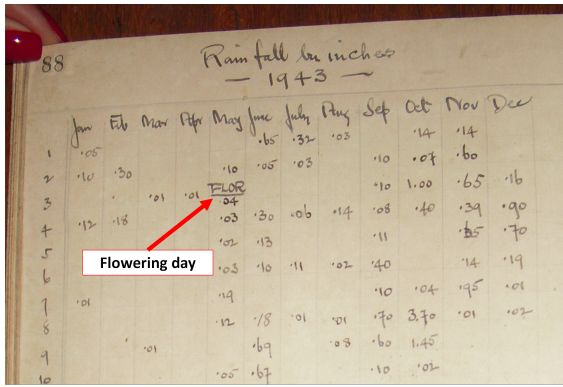 88
Rainfall in inches
— 1943 —
Jan Feb Mar Apr May June July Aug Sep Oct Nov Dec
1 ·05 ·65 ·32 ·03 ·14 ·14
2 ·10 ·30 ·10 ·05 ·03 ·10 ·07 ·60
FLOR
3 ·01 ·01 ·04 ·10 1.00 ·65 ·16
4 ·12 ·18 ·03 ·30 ·06 ·14 ·08 ·40 ·39 ·90
Flowering day
5 ·02 ·13 ·11 ·70
6 ·03 ·10 ·11 ·02 ·40 ·14 ·19
7 ·01 ·19 ·10 ·04 ·95 ·01
8 ·12 ·18 ·01 ·01 ·70 3.70 ·01 ·02
9 ·01 ·69 ·08 ·60 1.45
10 ·05 ·67 ·10 ·02